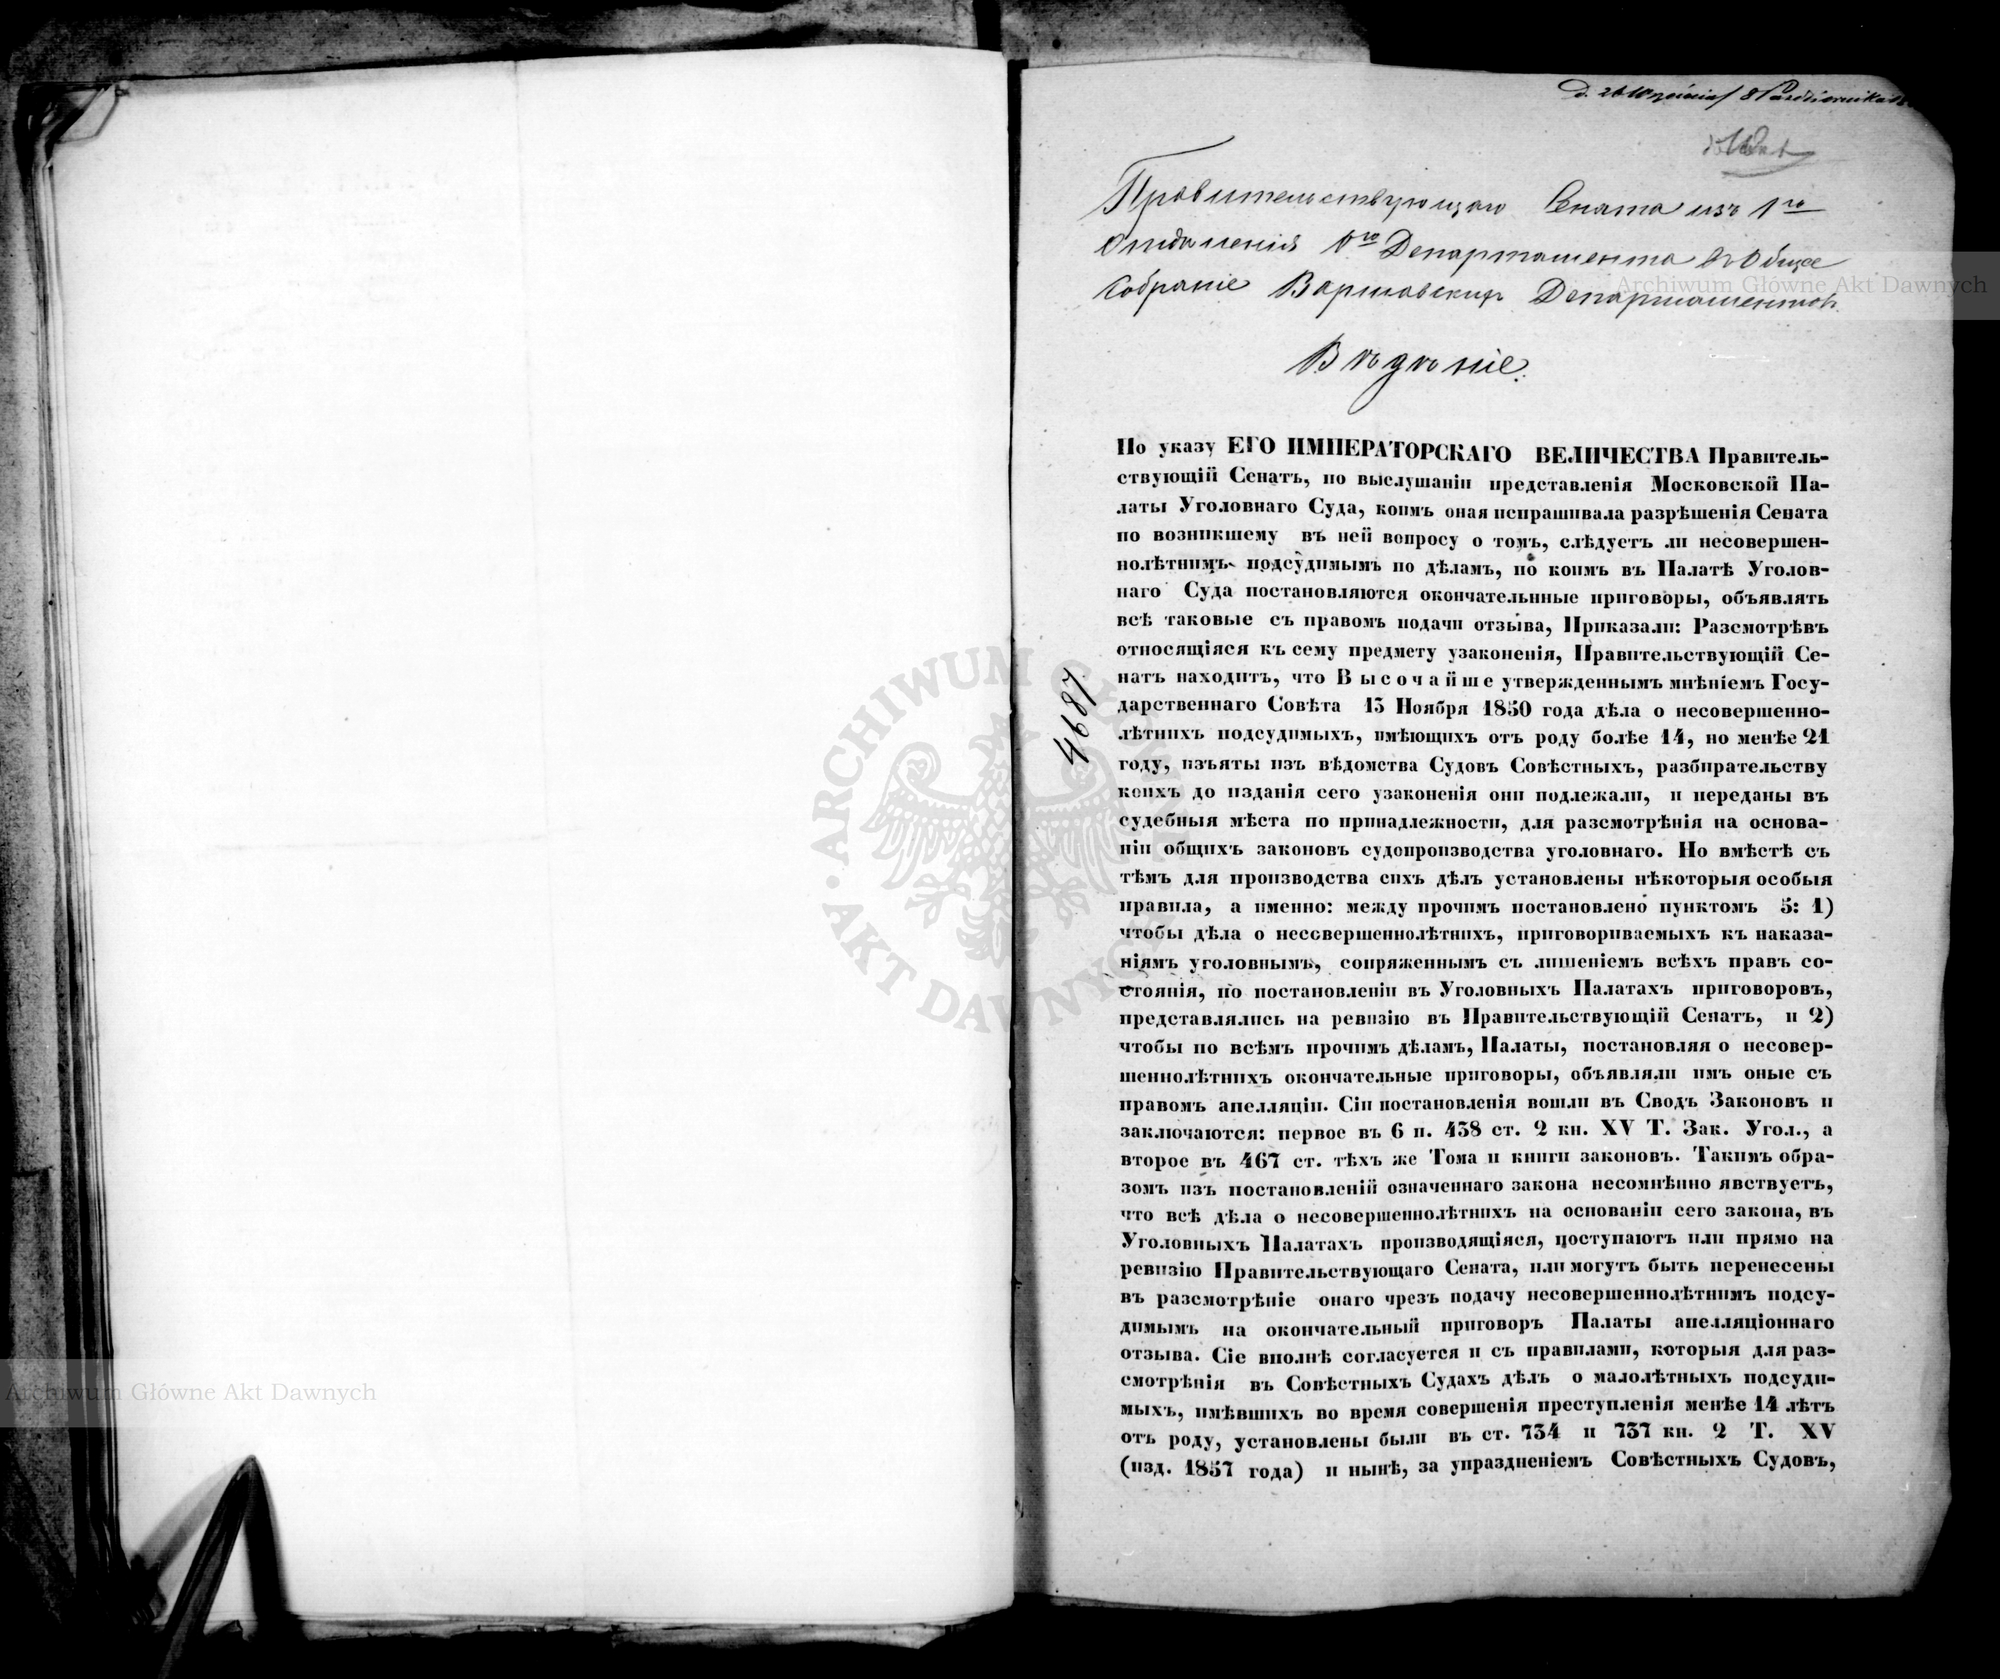 d. 26 Września/ 8 Października
Правительствующаго Сената изъ 1го
отдѣленія 5го Департамента въ Общее
Собраніе Варшавскихъ Департаментовъ.
Вѣдѣніе.
4687
По указу ЕГО ИМПЕРАТОРСКАГО ВЕЛИЧЕСТВА Правитель-
ствующій Сенатъ, по выслушаніи представленія Московской Па-
латы Уголовнаго Суда, коимъ оная испрашивала разрѣшенія Сената
по возникшему въ ней вопросу о томъ, слѣдуетъ ли несовершен-
нолѣтнимъ подсудимымъ по дѣламъ, по коимъ въ Палатѣ Уголов-
наго Суда постановляются окончательнные приговоры, объявлять
всѣ таковые съ правомъ подачи отзыва, Приказали: Разсмотрѣвъ
относящіяся къ сему предмету узаконенія, Правительствующій Се-
натъ находитъ, что Высочайше утвержденнымъ мнѣніемъ Госу-
дарственнаго Совѣта 13 Ноября 1850 года дѣла о несовершенно-
лѣтнихъ подсудимыхъ, имѣющихъ отъ роду болѣе 14, но менѣе 21
году, изъяты изъ вѣдомства Судовъ Совѣстныхъ, разбирательству
коихъ до изданія сего узаконенія они подлежали, и переданы въ
судебныя мѣста по принадлежности, для разсмотрѣнія на основа-
ніи общихъ законовъ судопроизводства уголовнаго. Но вмѣстѣ съ
тѣмъ для производства сихъ дѣлъ установлены нѣкоторыя особыя
правила, а именно: между прочимъ постановлено пунктомъ 5: 1)
чтобы дѣла о несовершеннолѣтнихъ, приговориваемыхъ къ наказа-
ніямъ уголовнымъ, сопряженнымъ съ лишеніемъ всѣхъ правъ со-
стоянія, по постановленіи въ Уголовныхъ Палатахъ приговоровъ,
представлялись на ревизію въ Правительствующій Сенатъ, и 2)
чтобы по всѣмъ прочимъ дѣламъ, Палаты, постановляя о несовер-
шеннолѣтнихъ окончательные приговоры, объявляли имъ оные съ
правомъ апелляціи. Сіи постановленія вошли въ Сводъ Законовъ и
заключаются: первое въ 6 п. 438 ст. 2 кн. XV Т. Зак. Угол., а
второе въ 467 ст. тѣхъ же Тома и книги законовъ. Такимъ обра-
зомъ изъ постановленій означеннаго закона несомнѣнно явствуетъ,
что всѣ дѣла о несовершеннолѣтнихъ на основаніи сего закона, въ
Уголовныхъ Палатахъ производящіяся, поступаютъ или прямо на
ревизію Правительствующаго Сената, или могутъ быть перенесены
въ разсмотрѣніе онаго чрезъ подачу несовершеннолѣтнимъ подсу-
димымъ на окончательный приговоръ Палаты апелляціоннаго
отзыва. Сіе вполнѣ согласуется и съ правилами, которыя для раз-
смотрѣнія въ Совѣстныхъ Судахъ дѣлъ о малолѣтныхъ подсуди-
мыхъ, имѣвшихъ во время совершенія преступленія менѣе 14 лѣтъ
отъ роду, установлены были въ ст. 734 и 737 кн. 2 Т. XV
(изд. 1857 года) и нынѣ, за упраздненіемъ Совѣстныхъ Судовъ,
Archiwum Główne Akt Dawnych
Archiwum Główne Akt Dawnych
ARCHIWUM GŁÓWNE · AKT DAWNYCH ·